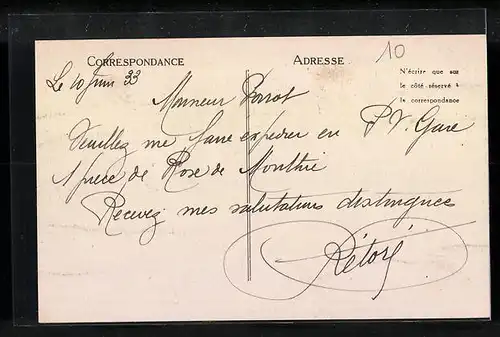 CORRESPONDANCE
ADRESSE
10
N'écrire que sur
le côté réservé à
la correspondance
Le 10 Juin 33
Monsieur Porrot
Veuillez me faire expédier en P.V. Gare
1 pièce de Rosé de Monthie
Recevez mes salutations distinguées
Rétoré